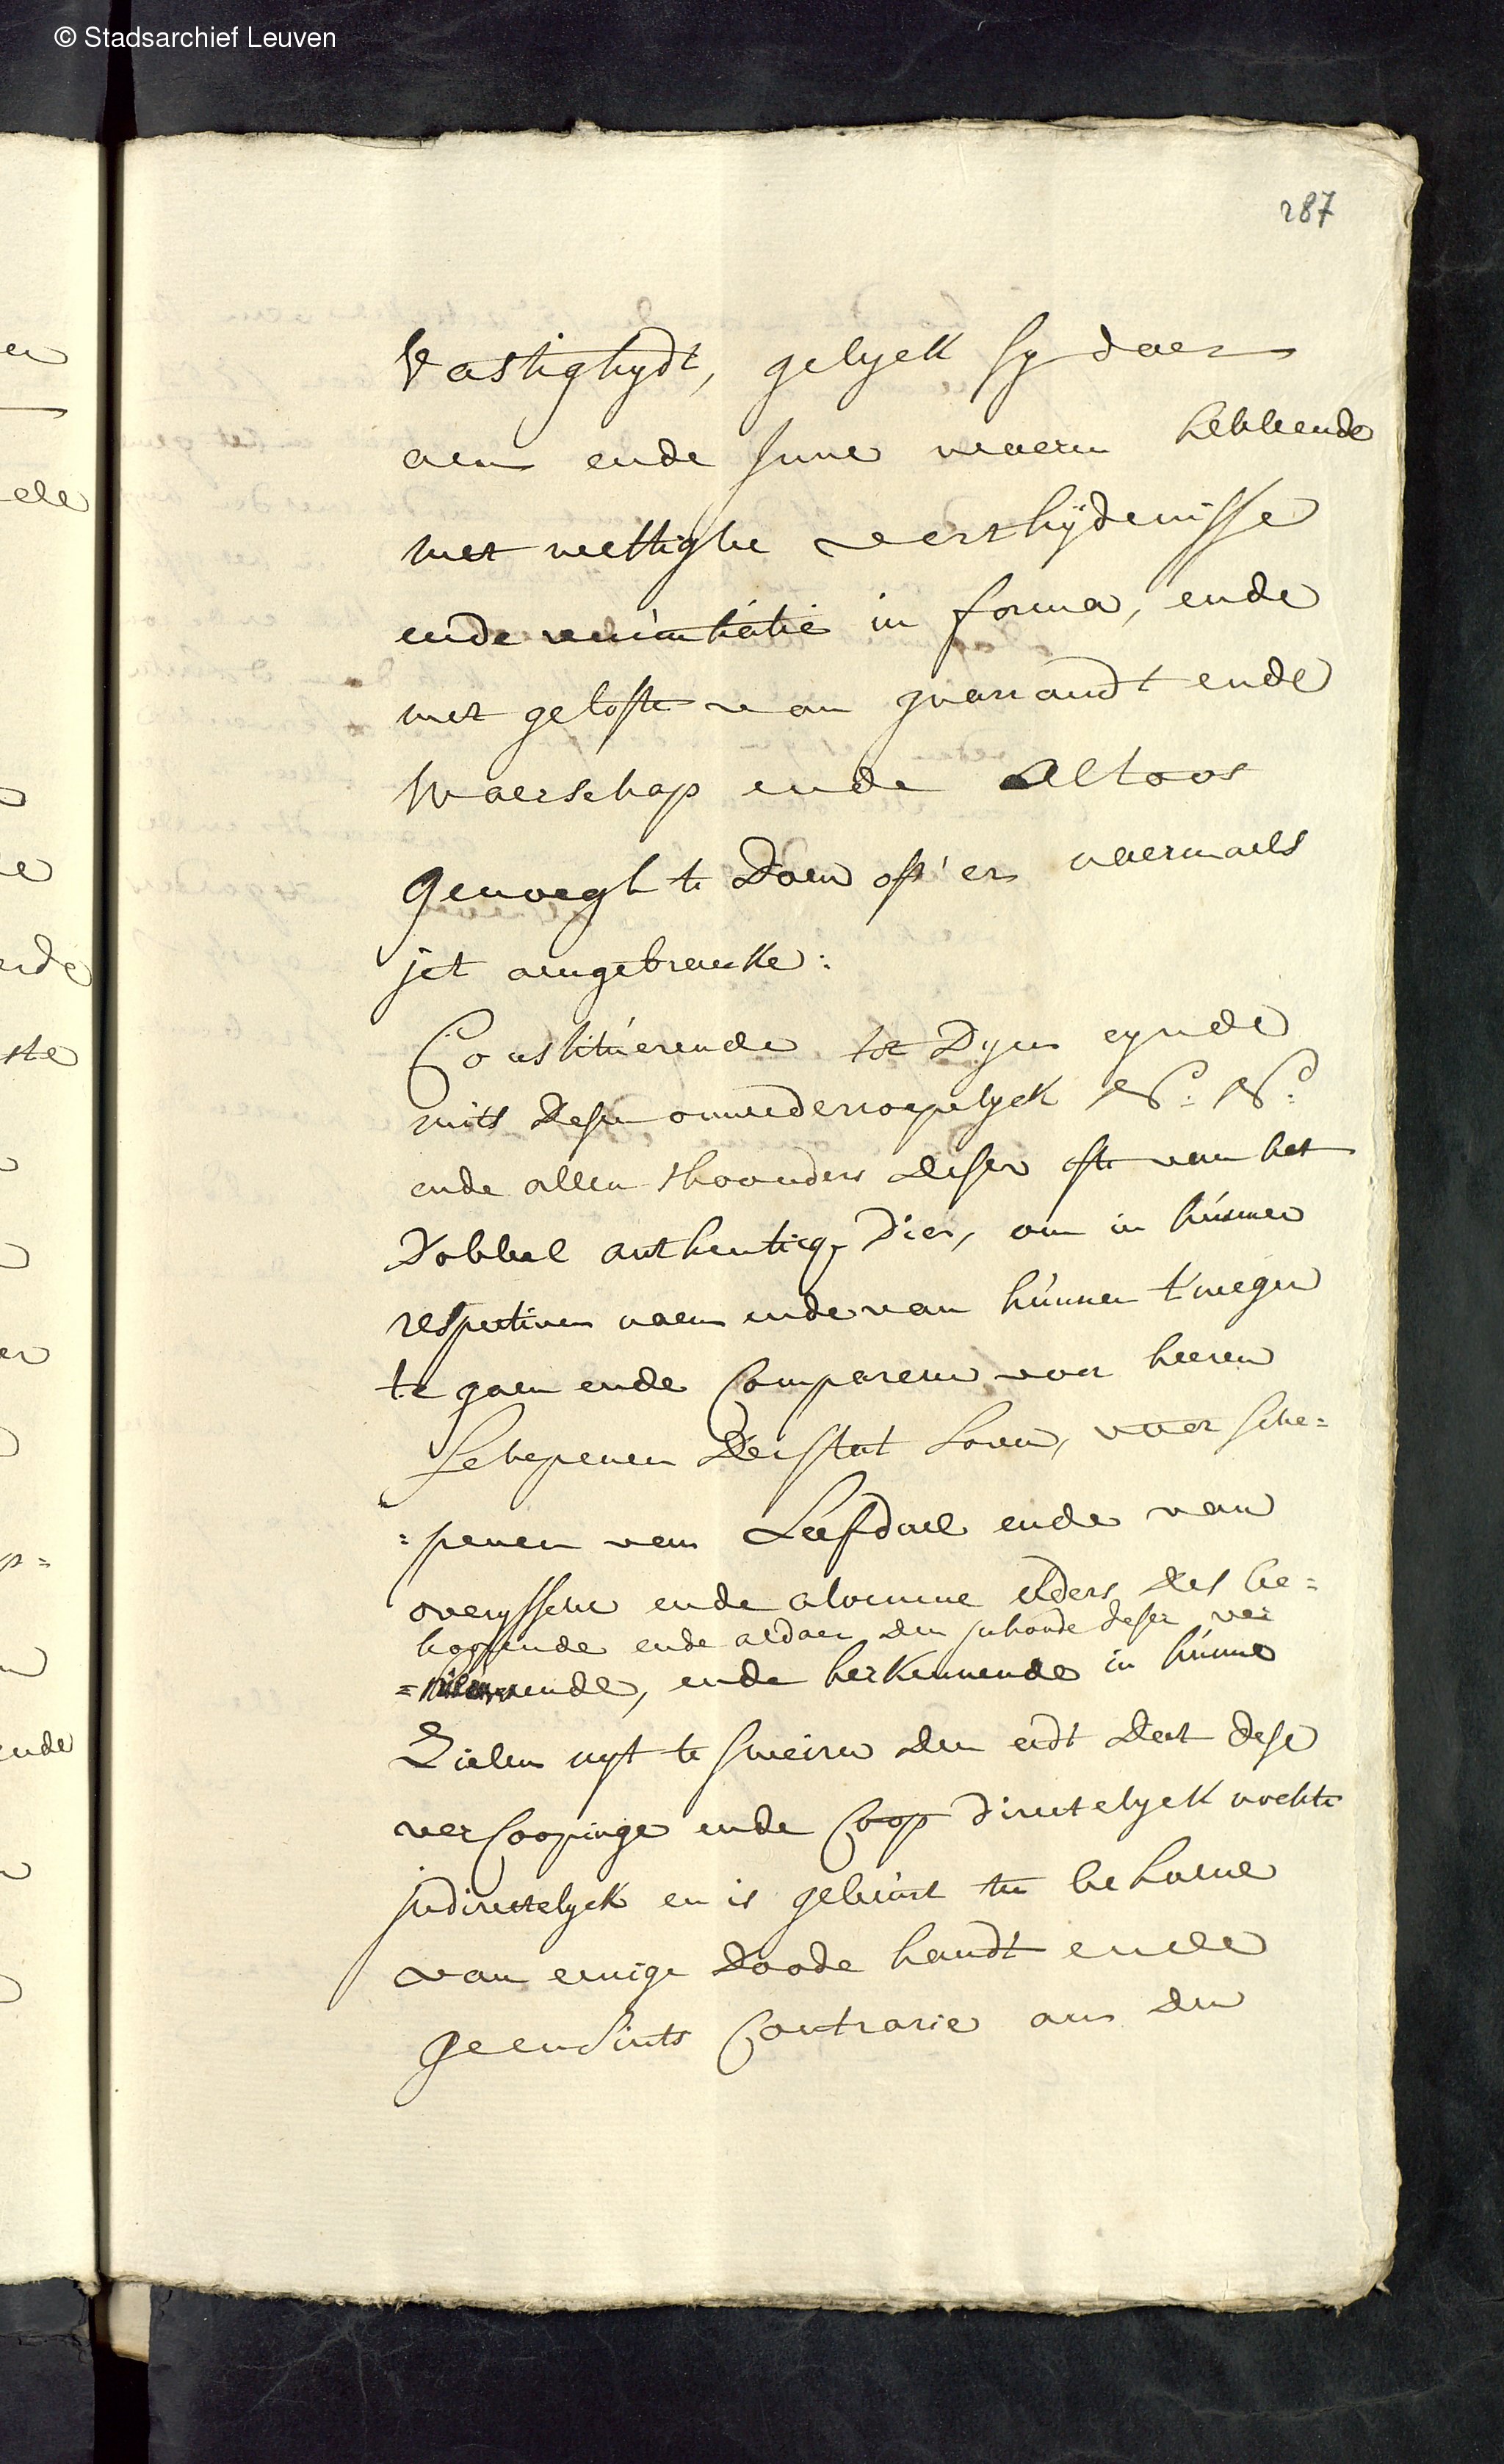 © Stadsarchief Leuven
287
Vastighydt, gelyck sy daer
aen ende inne waeren hebbende
met wettighe verthijdenisse
ende renúntiatie in forma, ende
met gelofte van guarrandt ende
Waerschap ende Altoos
genoegh te Doen oft' er naermaels
jet aengebreucke:
Constitúerende tot Dyen eynde
mits Desen onwederroepelyck N: N:
ende allen thoonders deser ofte van het
Dobbel authenticq Dier, om in húnnen
respectiven naem ende van húnnen t'wegen
te gaen ende Compareren voor heeren
Schepenen Der stat Loven, voor sche=
=penen van Leefdael ende van
overyssche ende alomme elders des be=
hoorende ende aldaer den inhoude deser ver
=nieuwende, ende herkennende in húnne
Zielen uyt te sweiren den eedt dat dese
vercoopinge ende Coop directelyck nochte
indirectelyck en is gebeúrt ten behoeve
van eenige doode handt ende
geensints Contrarie aen den